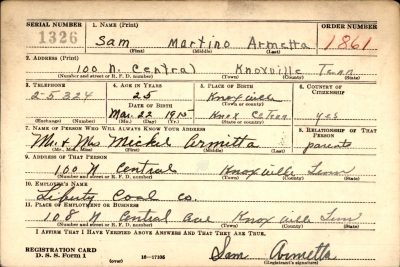 SERIAL NUMBER 1. NAME (Print) ORDER NUMBER
1326 Sam Martino Armetta 1861
(First) (Middle) (Last)
2. ADDRESS (Print)
100 N. Central Knoxville Tenn
(Number and street or R. F. D. number) (Town) (County) (State)
3. TELEPHONE 4. AGE IN YEARS 5. PLACE OF BIRTH 6. COUNTRY OF CITIZENSHIP
25324 25 Knoxville
DATE OF BIRTH (Town or county)
Mar. 22 1915 Knox Co Tenn yes
(Exchange) (Number) (Mo.) (Day) (Yr.) (State or country)
7. NAME OF PERSON WHO WILL ALWAYS KNOW YOUR ADDRESS 8. RELATIONSHIP OF THAT PERSON
Mr. & Mrs Mickel Armitta parents
9. ADDRESS OF THAT PERSON
100 N Central Knoxville Tenn
(Number and street or R. F. D. number) (Town) (County) (State)
10. EMPLOYER'S NAME
Liberty Coal Co.
11. PLACE OF EMPLOYMENT OR BUSINESS
108 N Central Ave Knoxville Tenn
(Number and street or R. F. D. number) (Town) (County) (State)
I AFFIRM THAT I HAVE VERIFIED ABOVE ANSWERS AND THAT THEY ARE TRUE.
REGISTRATION CARD Sam Armetta
D. S. S. Form 1 (over) 16—17105 (Registrant's signature)